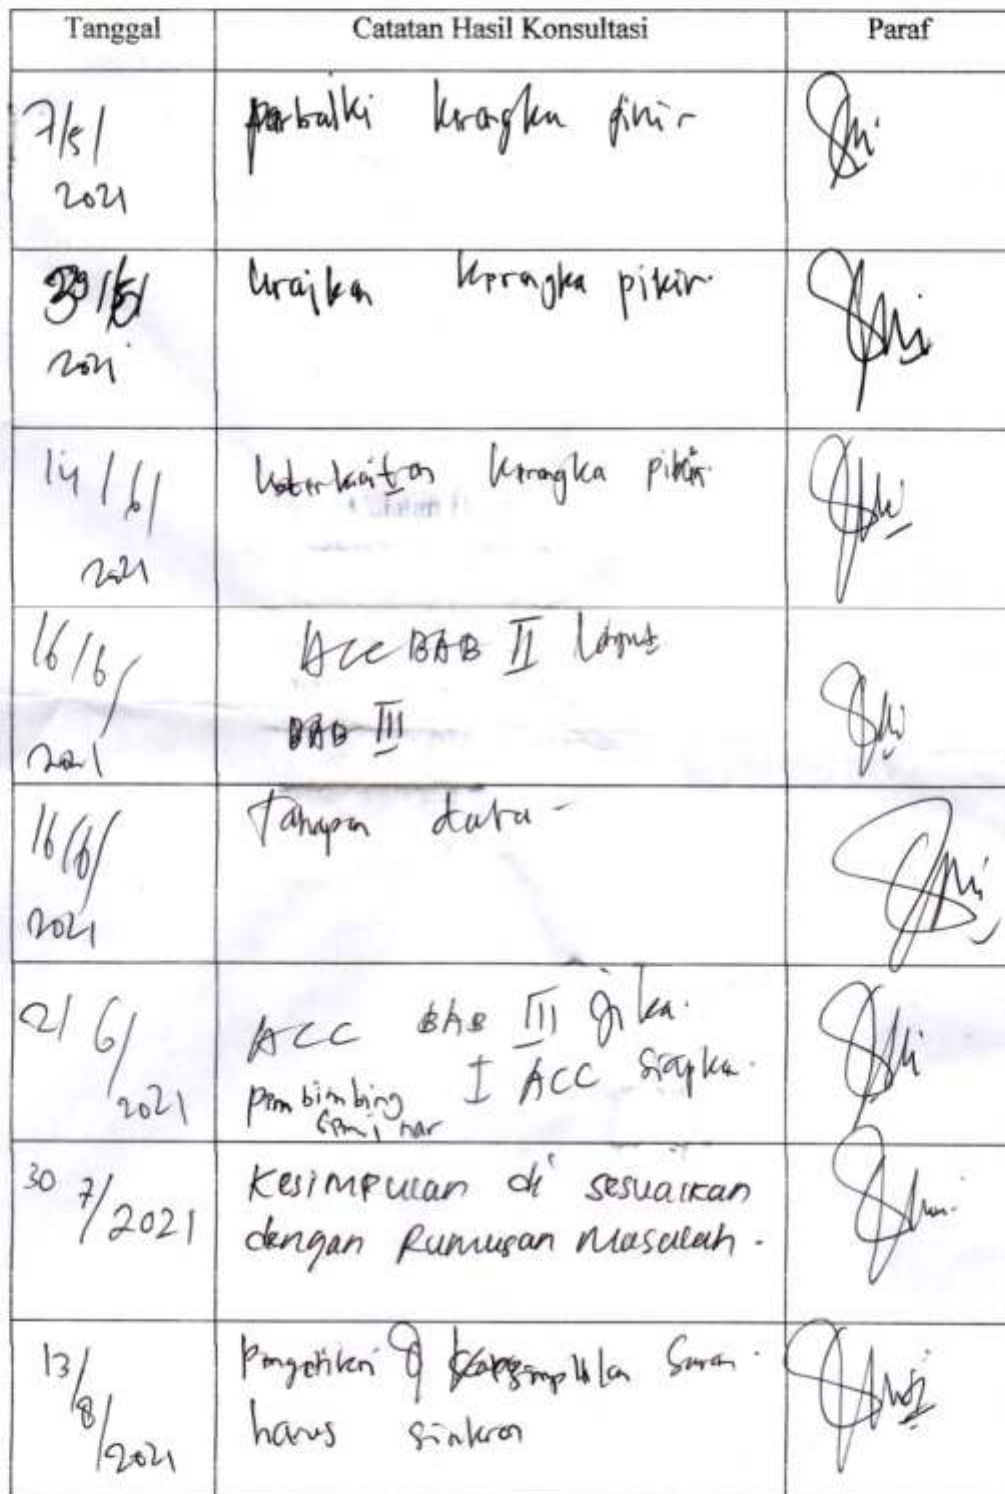 Tanggal Catatan Hasil Konsultasi Paraf
7/5/ perbaiki kerangka fikir
2021
/5/ Uraikan kerangka pikir.
2021
14/6/ keterkaitan kerangka pikir.
2021
16/6/ ACC BAB II lanjut
2021 BAB III
16/6/ Tahapan data
2021
21 6/ ACC BAB III jika.
2021 pembimbing I ACC siapkan.
seminar
30 7/2021 Kesimpulan di sesuaikan
dengan Rumusan Masalah.
13/8/2021 Pengetikan kesimpulan saran.
harus sinkron